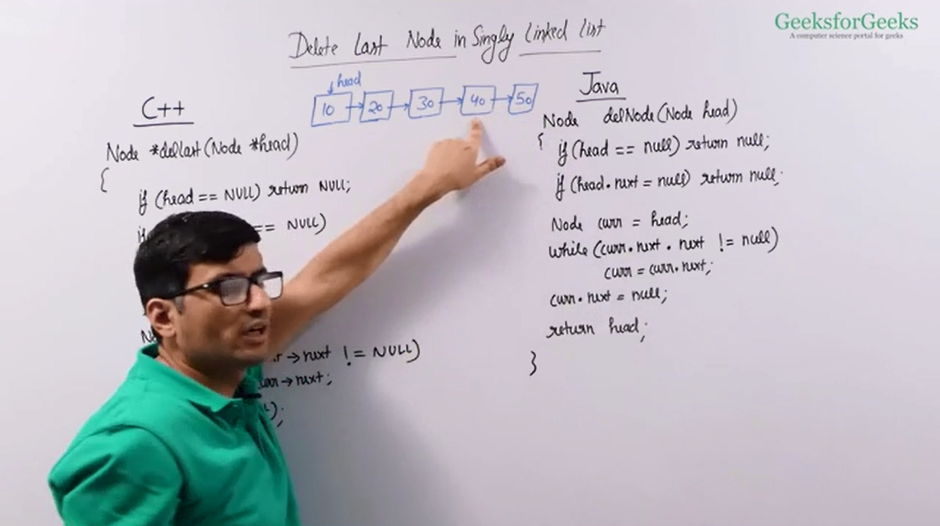 GeeksforGeeks
A computer science portal for geeks
Delete Last Node in Singly Linked List
head
10 20 30 40 50
C++
Node *dellast(Node *head)
{
if (head == NULL) return NULL;
== NULL)
→ next != NULL)
curr → next;
);
Java
Node delNode(Node head)
{
if (head == null) return null;
if (head.next = null) return null;
Node curr = head;
while (curr.next.next != null)
curr = curr.next;
curr.next = null;
return head;
}